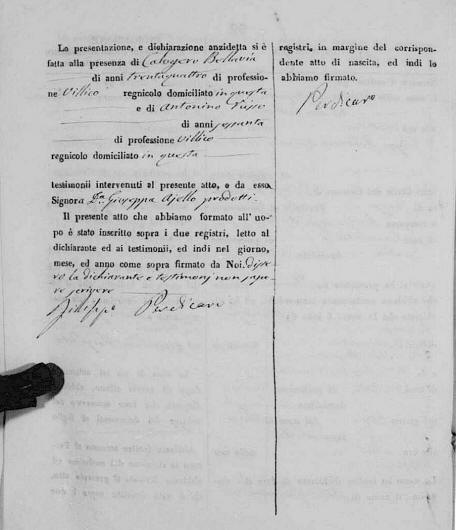 La presentazione, e dichiarazione anzidetta si è
fatta alla presenza di Calogero Bellavia
di anni trentaquattro di professio-
ne Villico regnicolo domiciliato in questa
e di Antonino Russo
di anni sessanta
di professione Villico
regnicolo domiciliato in questa
testimonii intervenuti al presente atto, e da essa
Signora D.na Giuseppa Ajello prodotti.
Il presente atto che abbiamo formato all' uo-
po è stato inscritto sopra i due registri, letto al
dichiarante ed ai testimonii, ed indi nel giorno,
mese, ed anno come sopra firmato da Noi. dissero
la dichiarante e testimonj non sape-
re scrivere
Filippo Perdicaro
registri, in margine del corrispon-
dente atto di nascita, ed indi lo
abbiamo firmato.
Perdicaro